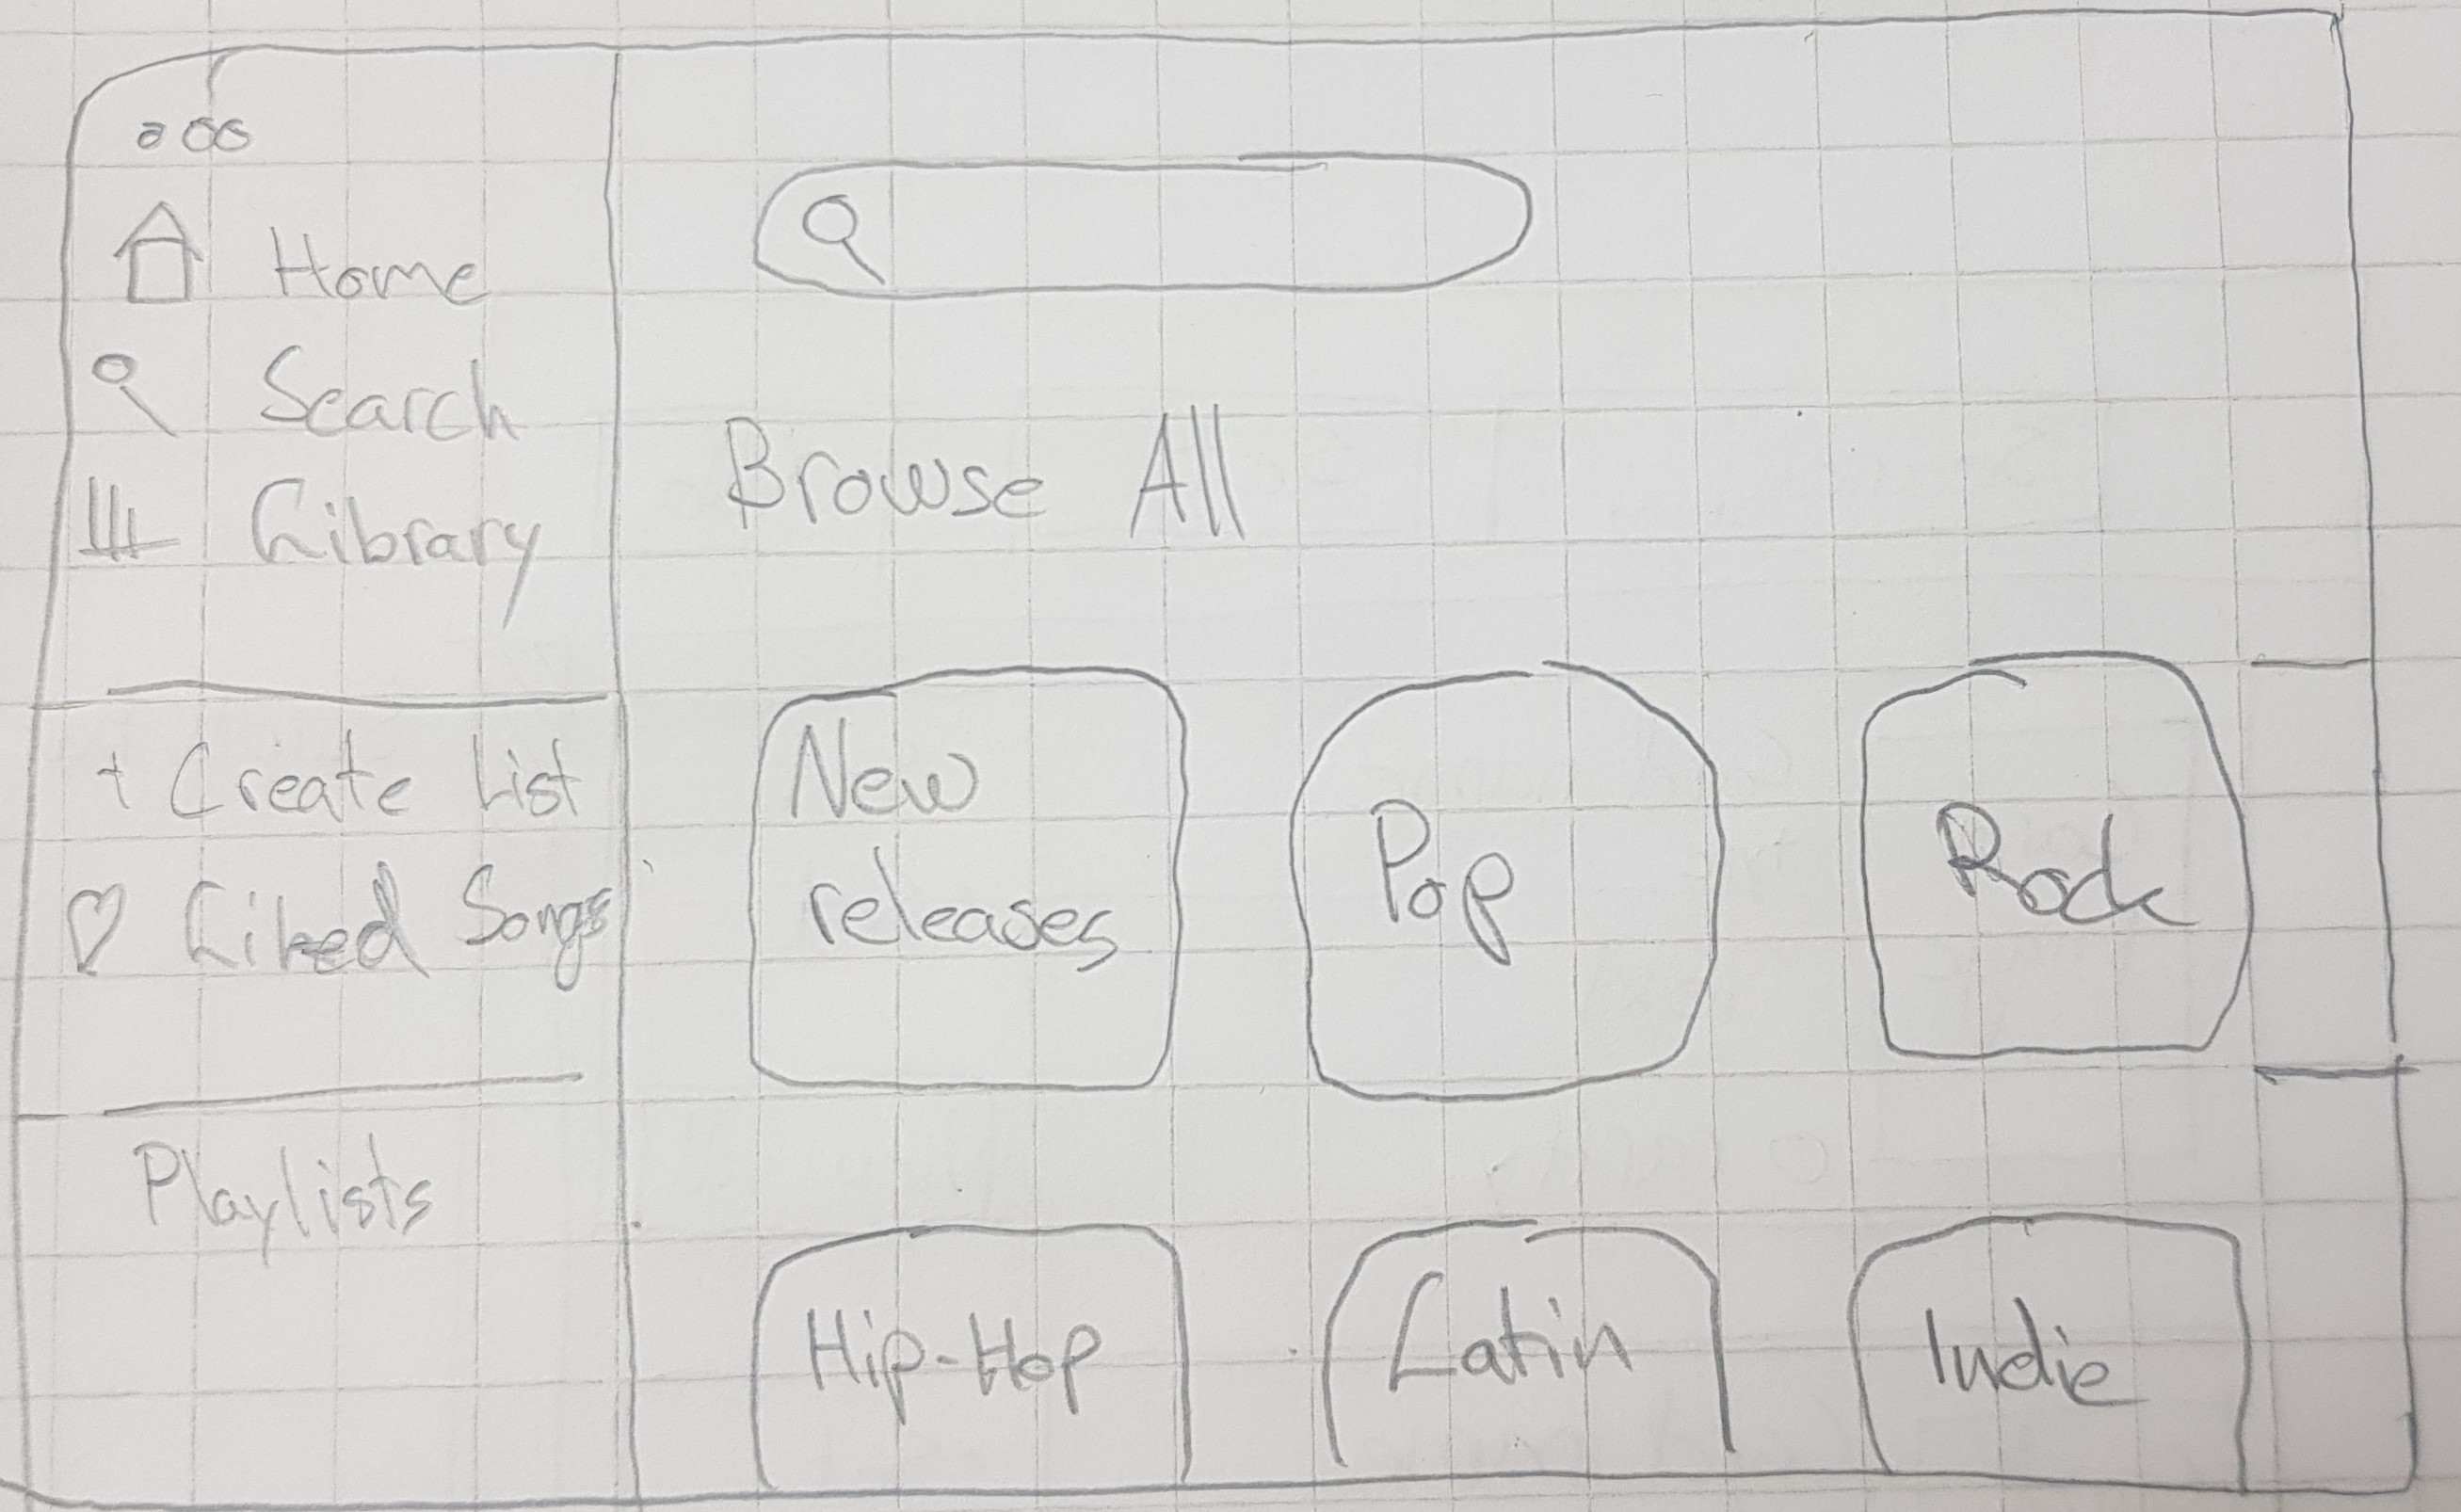 Home
Search
Library
+ Create List
Liked Songs
Playlists
Browse All
New
releases
Pop
Rock
Hip-Hop
Latin
Indie